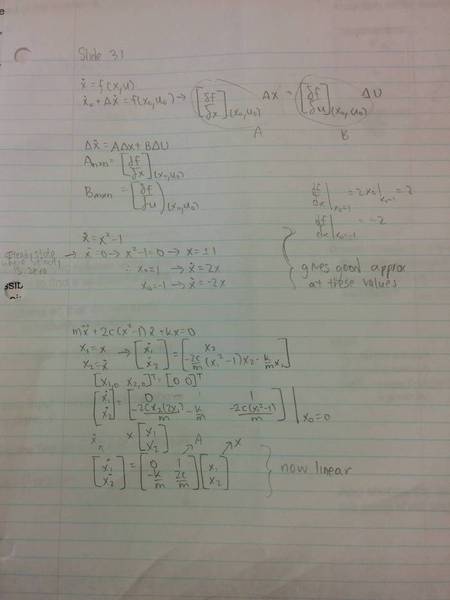 Slide 31
ẋ = f(x,u)
ẋ₀ + Δẋ = f(x₀,u₀) → [δf/δx](x₀,u₀) Δx = [δf/δu](x₀,u₀) ΔU
A B
Δẋ = AΔx + BΔU
Anxn = [δf/δx](x₀,u₀)
Bmxn = [δf/δu](x₀,u₀)
df/dx |x₀=1 = 2x₀|x₀=1 = 2
df/dx |x₀=-1 = -2
ẋ = x²-1
steady state where velocity is zero → ẋ=0 → x²-1=0 → x = ±1
∴ x₀=1 → ẋ=2x
x₀=-1 → ẋ=-2x
gives good approx
at these values
mẍ + 2c(x²-1)ẋ + kx = 0
x₁ = x → [ẋ₁ ẋ₂] = [x₂ -2c/m (x₁²-1)x₂ - k/m x₁]
x₂ = ẋ
[x₁,₀ x₂,₀]ᵀ = [0 0]ᵀ
[ẋ₁ ẋ₂] = [0 1 -2cx₂(2x₁)/m - k/m -2c(x₁²-1)/m] |x₀=0
x [x₁ x₂] A x
[ẋ₁ ẋ₂] = [0 1 -k/m 2c/m] [x₁ x₂] now linear